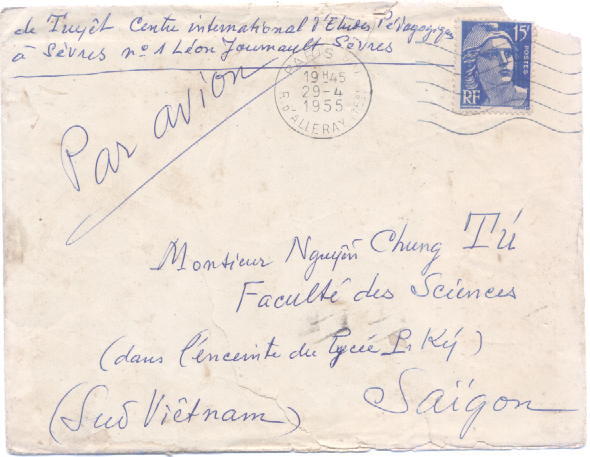 de Tuyêt Centre international d'Etudes Pédagogiques
à Sèvres nº 1 Léon Journault Sèvres
Par avion
PARIS
19H45
29-4
1955
R. D'ALLERAY
15F
POSTES
RF
Monsieur Nguyễn Chung Tú
Faculté des Sciences
(dans l'enceinte du lycée P. Ký)
Saïgon
(Sud Viêtnam)